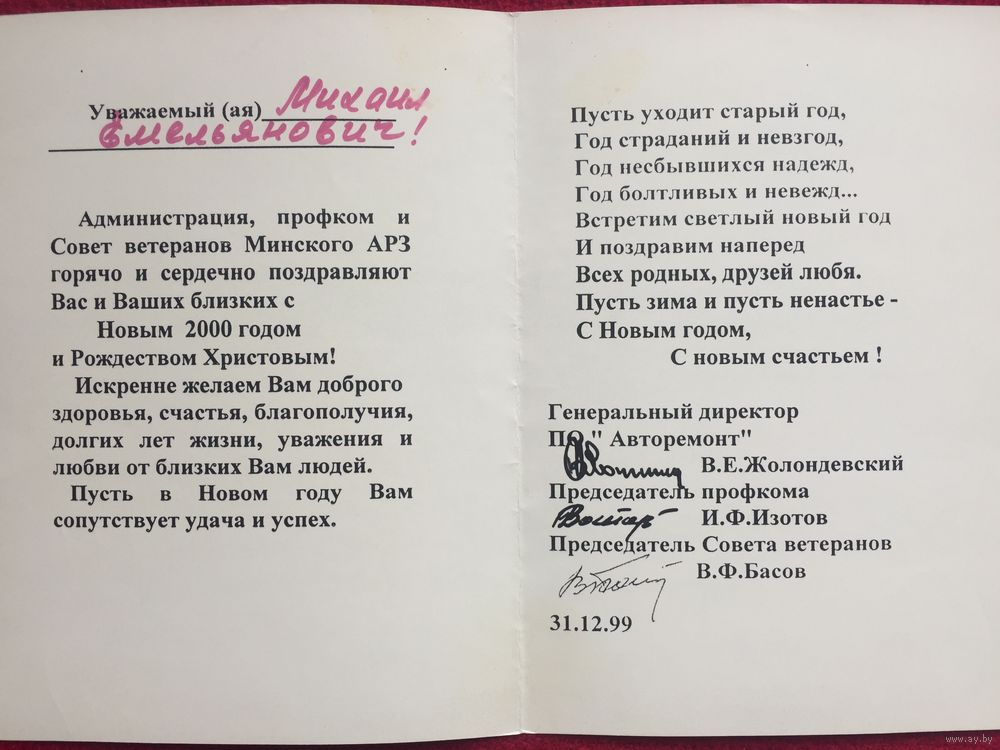 Уважаемый (ая) Михаил
Емельянович!
Администрация, профком и
Совет ветеранов Минского АРЗ
горячо и сердечно поздравляют
Вас и Ваших близких с
Новым 2000 годом
и Рождеством Христовым!
Искренне желаем Вам доброго
здоровья, счастья, благополучия,
долгих лет жизни, уважения и
любви от близких Вам людей.
Пусть в Новом году Вам
сопутствует удача и успех.
Пусть уходит старый год,
Год страданий и невзгод,
Год несбывшихся надежд,
Год болтливых и невежд...
Встретим светлый новый год
И поздравим наперед
Всех родных, друзей любя.
Пусть зима и пусть ненастье -
С Новым годом,
С новым счастьем !
Генеральный директор
ПО " Авторемонт"
В.Е.Жолондевский
Председатель профкома
И.Ф.Изотов
Председатель Совета ветеранов
В.Ф.Басов
31.12.99
www.ay.by